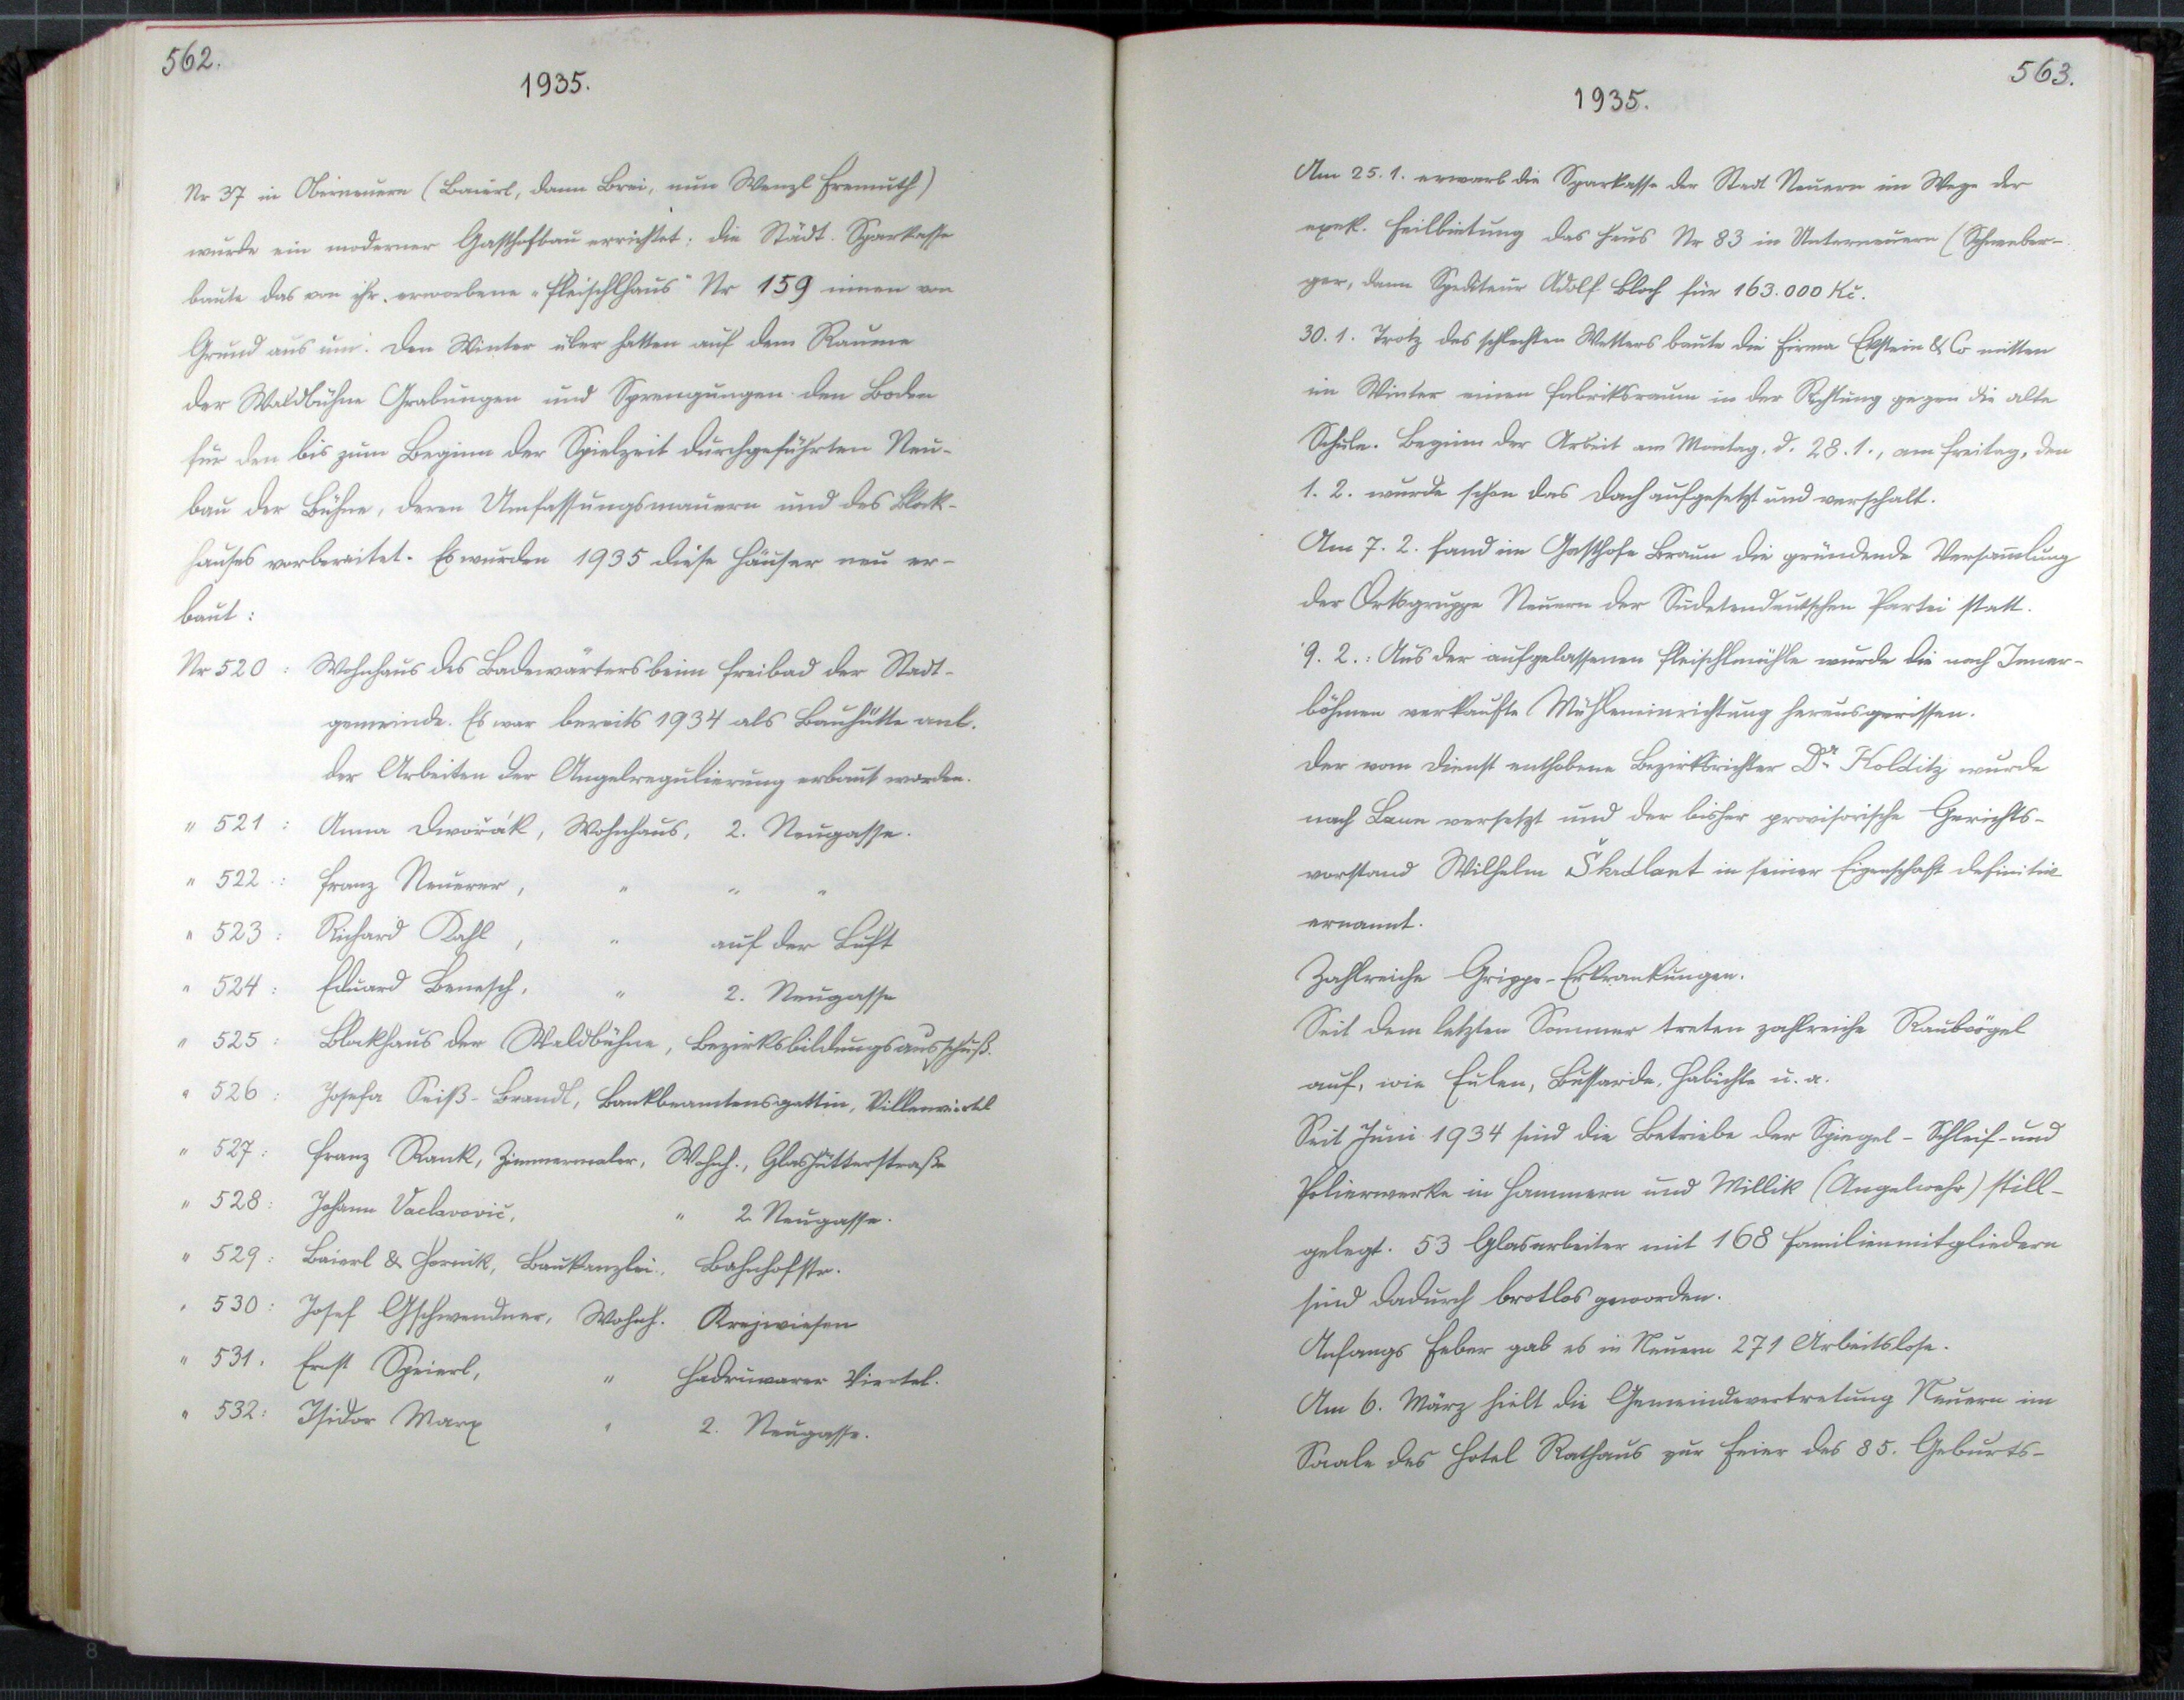 562.
1935.
Nr 37 in Oberneuern (Baierl, dann Brei, nun Wenzl Fremuth)
wurde ein moderner Gasthofbau errichtet; die Städt. Sparkasse
baute das von ihr erworbene „Fleischlhaus" Nr 159 innen von
Grund aus um. Den Winter über hatten auf dem Raume
der Waldbühne Grabungen und Sprengungen den Boden
für den bis zum Beginn der Spielzeit durchgeführten Neu-
bau der Bühne, deren Umfassungsmauern und des Block-
hauses vorbereitet. Es wurden 1935 diese Häuser neu er-
baut:
Nr 520: Wohnhaus des Badewärters beim Freibad der Stadt-
gemeinde. Es war bereits 1934 als Bauhütte anl.
der Arbeiten der Angelregulierung erbaut worden.
" 521: Anna Dwořák, Wohnhaus, 2. Neugasse.
" 522: Franz Neuerer, " " "
" 523: Richard Kahl, " auf der Luft
" 524: Eduard Benesch, " 2. Neugasse
" 525: Blockhaus der Waldbühne, Bezirksbildungsausschuß.
" 526: Josefa Seiß-Brandl, Bankbeamtensgattin, Villenviertel
" 527: Franz Rank, Zimmermaler, Wohnh., Glashüttenstraße
" 528: Johann Vaclavovič, " 2. Neugasse.
" 529: Baierl & Hornik, Baukanzlei, Bahnhofstr.
" 530: Josef Gschwendner, Wohnh. Krejwiesen
" 531: Ernst Speierl, " Hadruwarer Viertel.
" 532: Isidor Marx " 2. Neugasse.
563.
1935.
Am 25. 1. erwarb die Sparkasse der Stadt Neuern im Wege der
exek. Feilbietung das Haus Nr 83 in Unterneuern (Schneeber-
ger, dann Spediteur Adolf Bloch für 163.000 Kč.
30. 1. Trotz des schlechten Wetters baute die Firma Ekstein & Co mitten
im Winter einen Fabriksraum in der Richtung gegen die alte
Schule. Beginn der Arbeit am Montag, d. 28. 1., am Freitag, den
1. 2. wurde schon das Dach aufgesetzt und verschalt.
Am 7. 2. fand im Gasthofe Braun die gründende Versam̅lung
der Ortsgruppe Neuern der Sudetendeutschen Partei statt.
9. 2.: Aus der aufgelassenen Fleischlmühle wurde die nach Inner-
böhmen verkaufte Mühleneinrichtung herausgerissen.
Der vom Dienst enthobene Bezirksrichter Dr Kolditz wurde
nach Laun versetzt und der bisher provisorische Gerichts-
vorstand Wilhelm Škadlant in seiner Eigenschaft definitiv
ernannt.
Zahlreiche Grippe-Erkrankungen.
Seit dem letzten Sommer treten zahlreiche Raubvögel
auf, wie Eulen, Bussarde, Habichte u. a.
Seit Juni 1934 sind die Betriebe der Spiegel-Schleif- und
Polierwerke in Hammern und Millik (Angelwehr) still-
gelegt. 53 Glasarbeiter mit 168 Familienmitgliedern
sind dadurch brotlos geworden.
Anfangs Feber gab es in Neuern 271 Arbeitslose.
Am 6. März hielt die Gemeindevertretung Neuern im
Saale des Hotel Rathaus zur Feier des 85. Geburts-
8